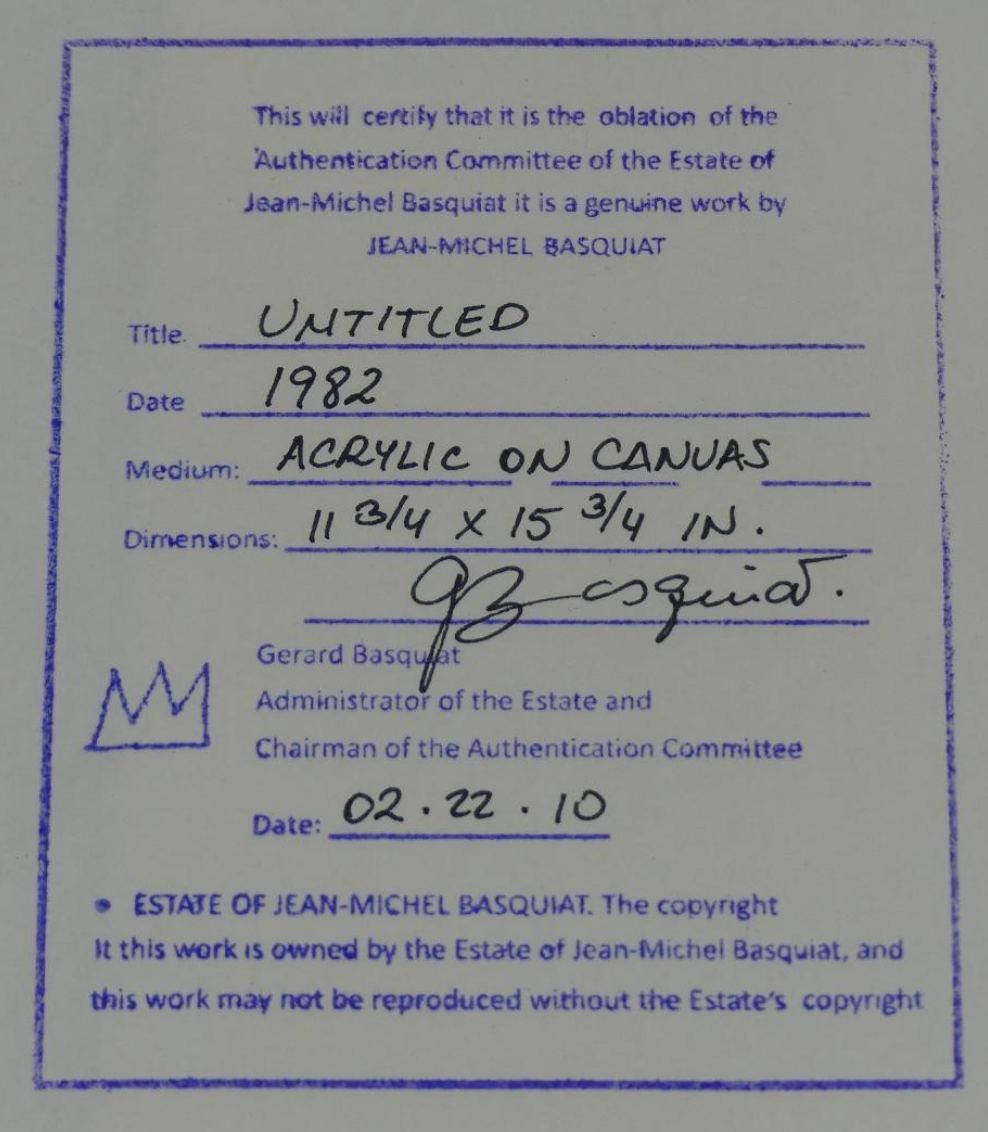 This will certify that it is the oblation of the
Authentication Committee of the Estate of
Jean-Michel Basquiat it is a genuine work by
JEAN-MICHEL BASQUIAT
Title. UNTITLED
Date 1982
Medium: ACRYLIC ON CANVAS
Dimensions: 11 3/4 x 15 3/4 IN.
G Basquiat.
Gerard Basquiat
Administrator of the Estate and
Chairman of the Authentication Committee
Date: 02.22.10
• ESTATE OF JEAN-MICHEL BASQUIAT. The copyright
It this work is owned by the Estate of Jean-Michel Basquiat, and
this work may not be reproduced without the Estate's copyright